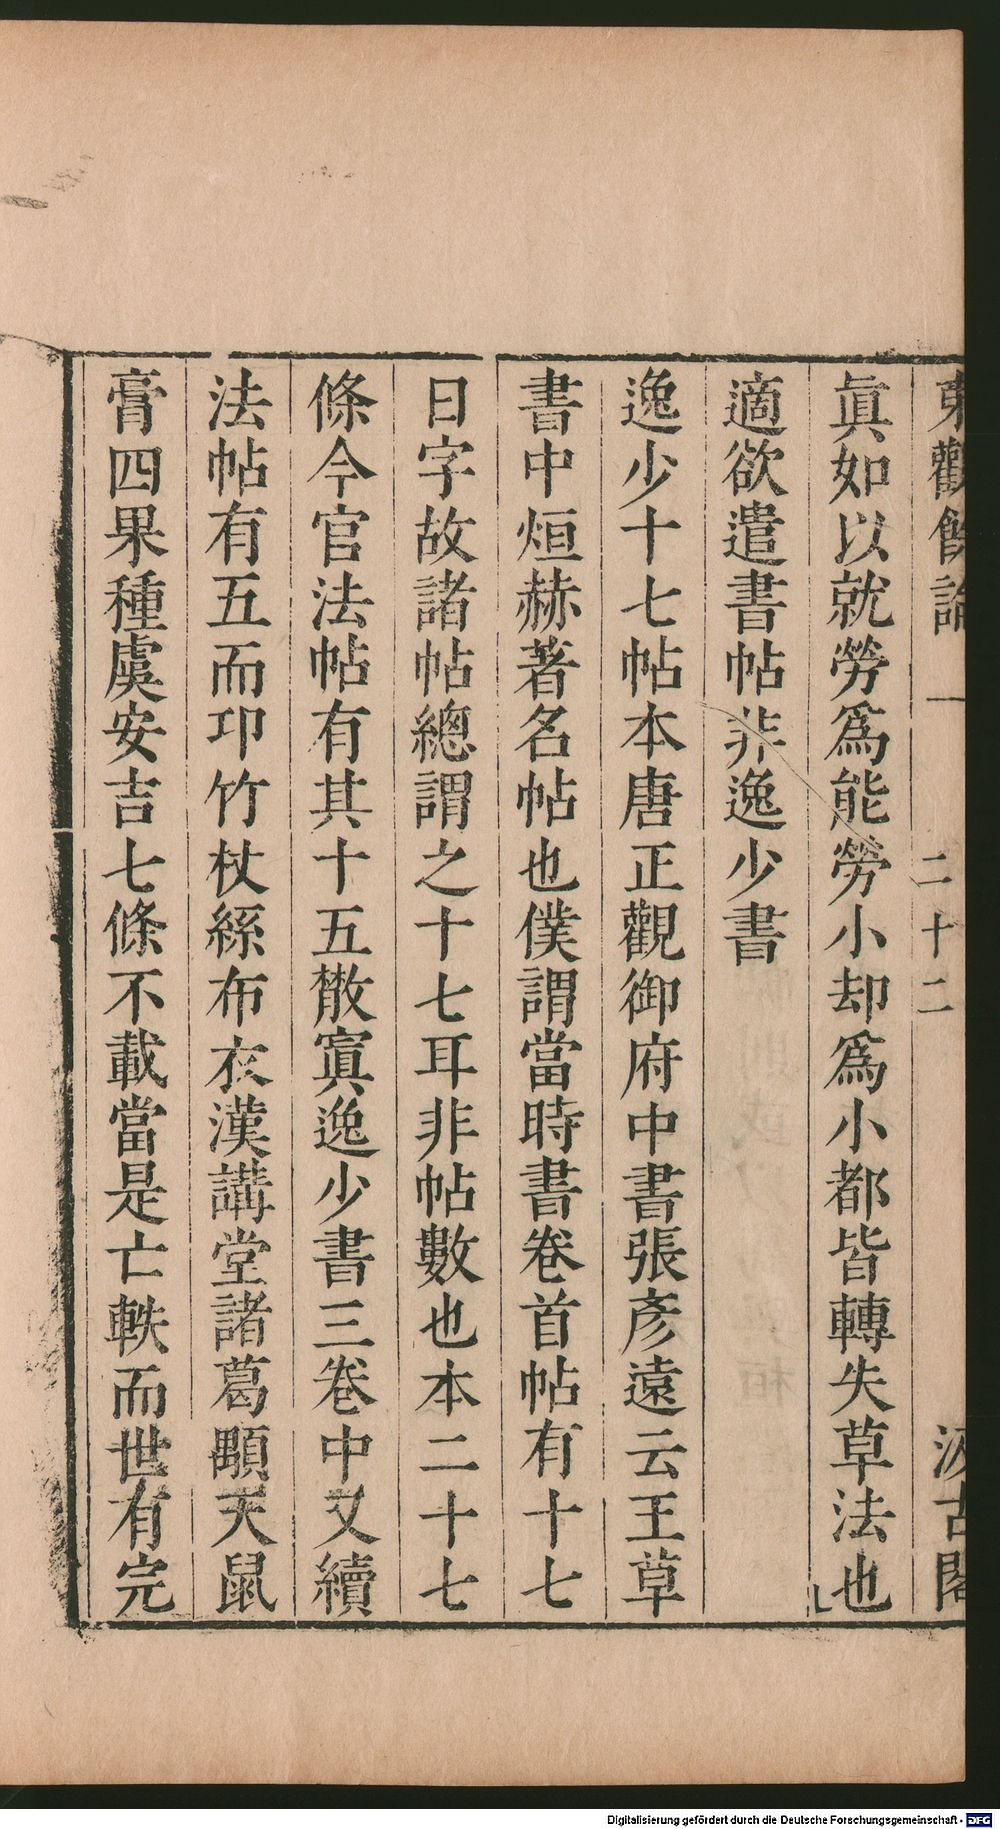 東觀餘論 一 二十二 汲古閣
眞如以就勞爲能勞小却爲小都皆轉失草法也
適欲遣書帖非逸少書
逸少十七帖本唐正觀御府中書張彥遠云王草
書中烜赫著名帖也僕謂當時書卷首帖有十七
日字故諸帖總謂之十七耳非帖數也本二十七
條今官法帖有其十五散寘逸少書三卷中又續
法帖有五而卭竹杖絲布衣漢講堂諸葛顒天鼠
膏四果種虞安吉七條不載當是亡軼而世有完
Digitalisierung gefördert durch die Deutsche Forschungsgemeinschaft - DFG